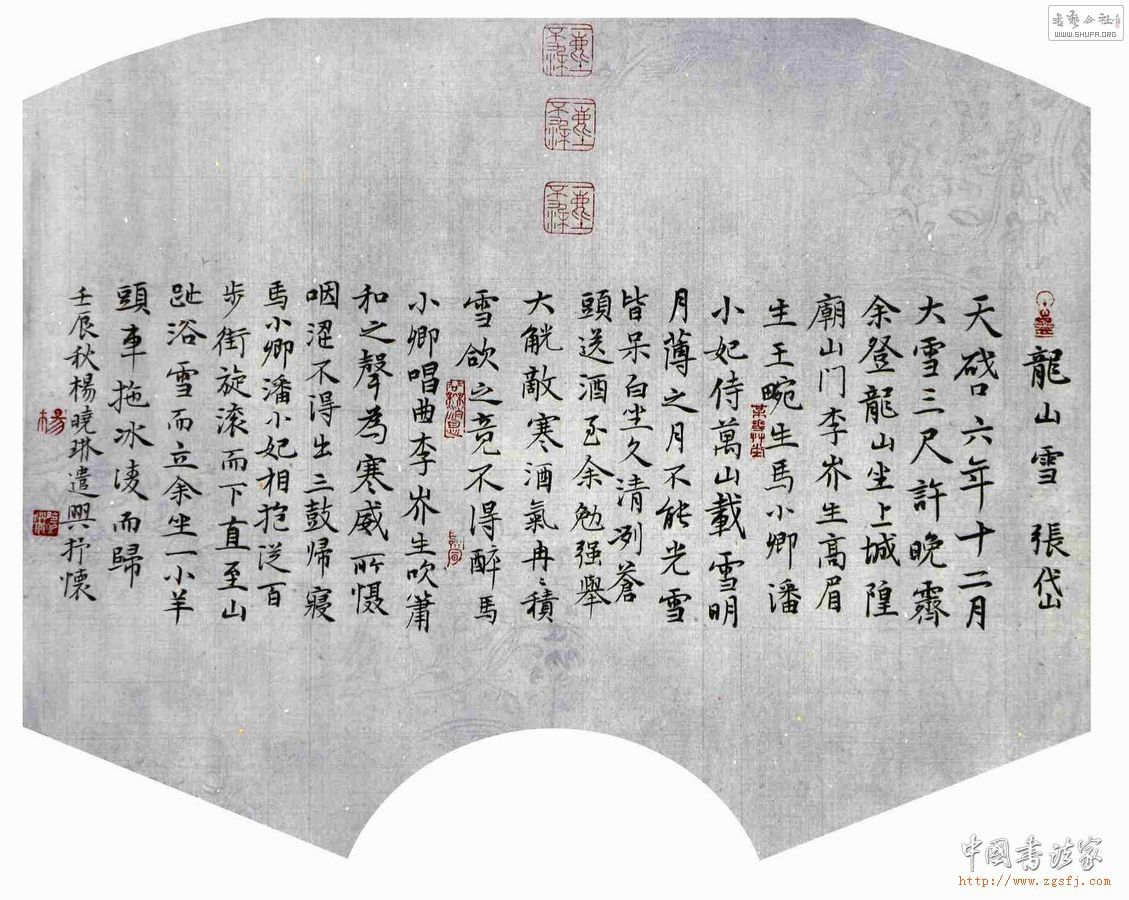 龍山雪 張岱
天啟六年十二月
大雪三尺許晚霽
余登龍山坐上城隍
廟山门李岕生高眉
生王畹生馬小卿潘
小妃侍萬山載雪明
月薄之月不能光雪
皆呆白坐久清冽蒼
頭送酒至余勉强舉
大觥敵寒酒氣冉〻積
雪欱之竟不得醉馬
小卿唱曲李岕生吹簫
和之聲為寒威所慑
咽澀不得出三鼓帰寢
馬小卿潘小妃相抱從百
步街旋滚而下直至山
趾浴雪而立余坐一小羊
頭車拖冰凌而歸
壬辰秋楊曉琳遣興抒懷
楊
書藝公社
WWW.SHUFA.ORG
中國書法家
http://www.zgsfj.com